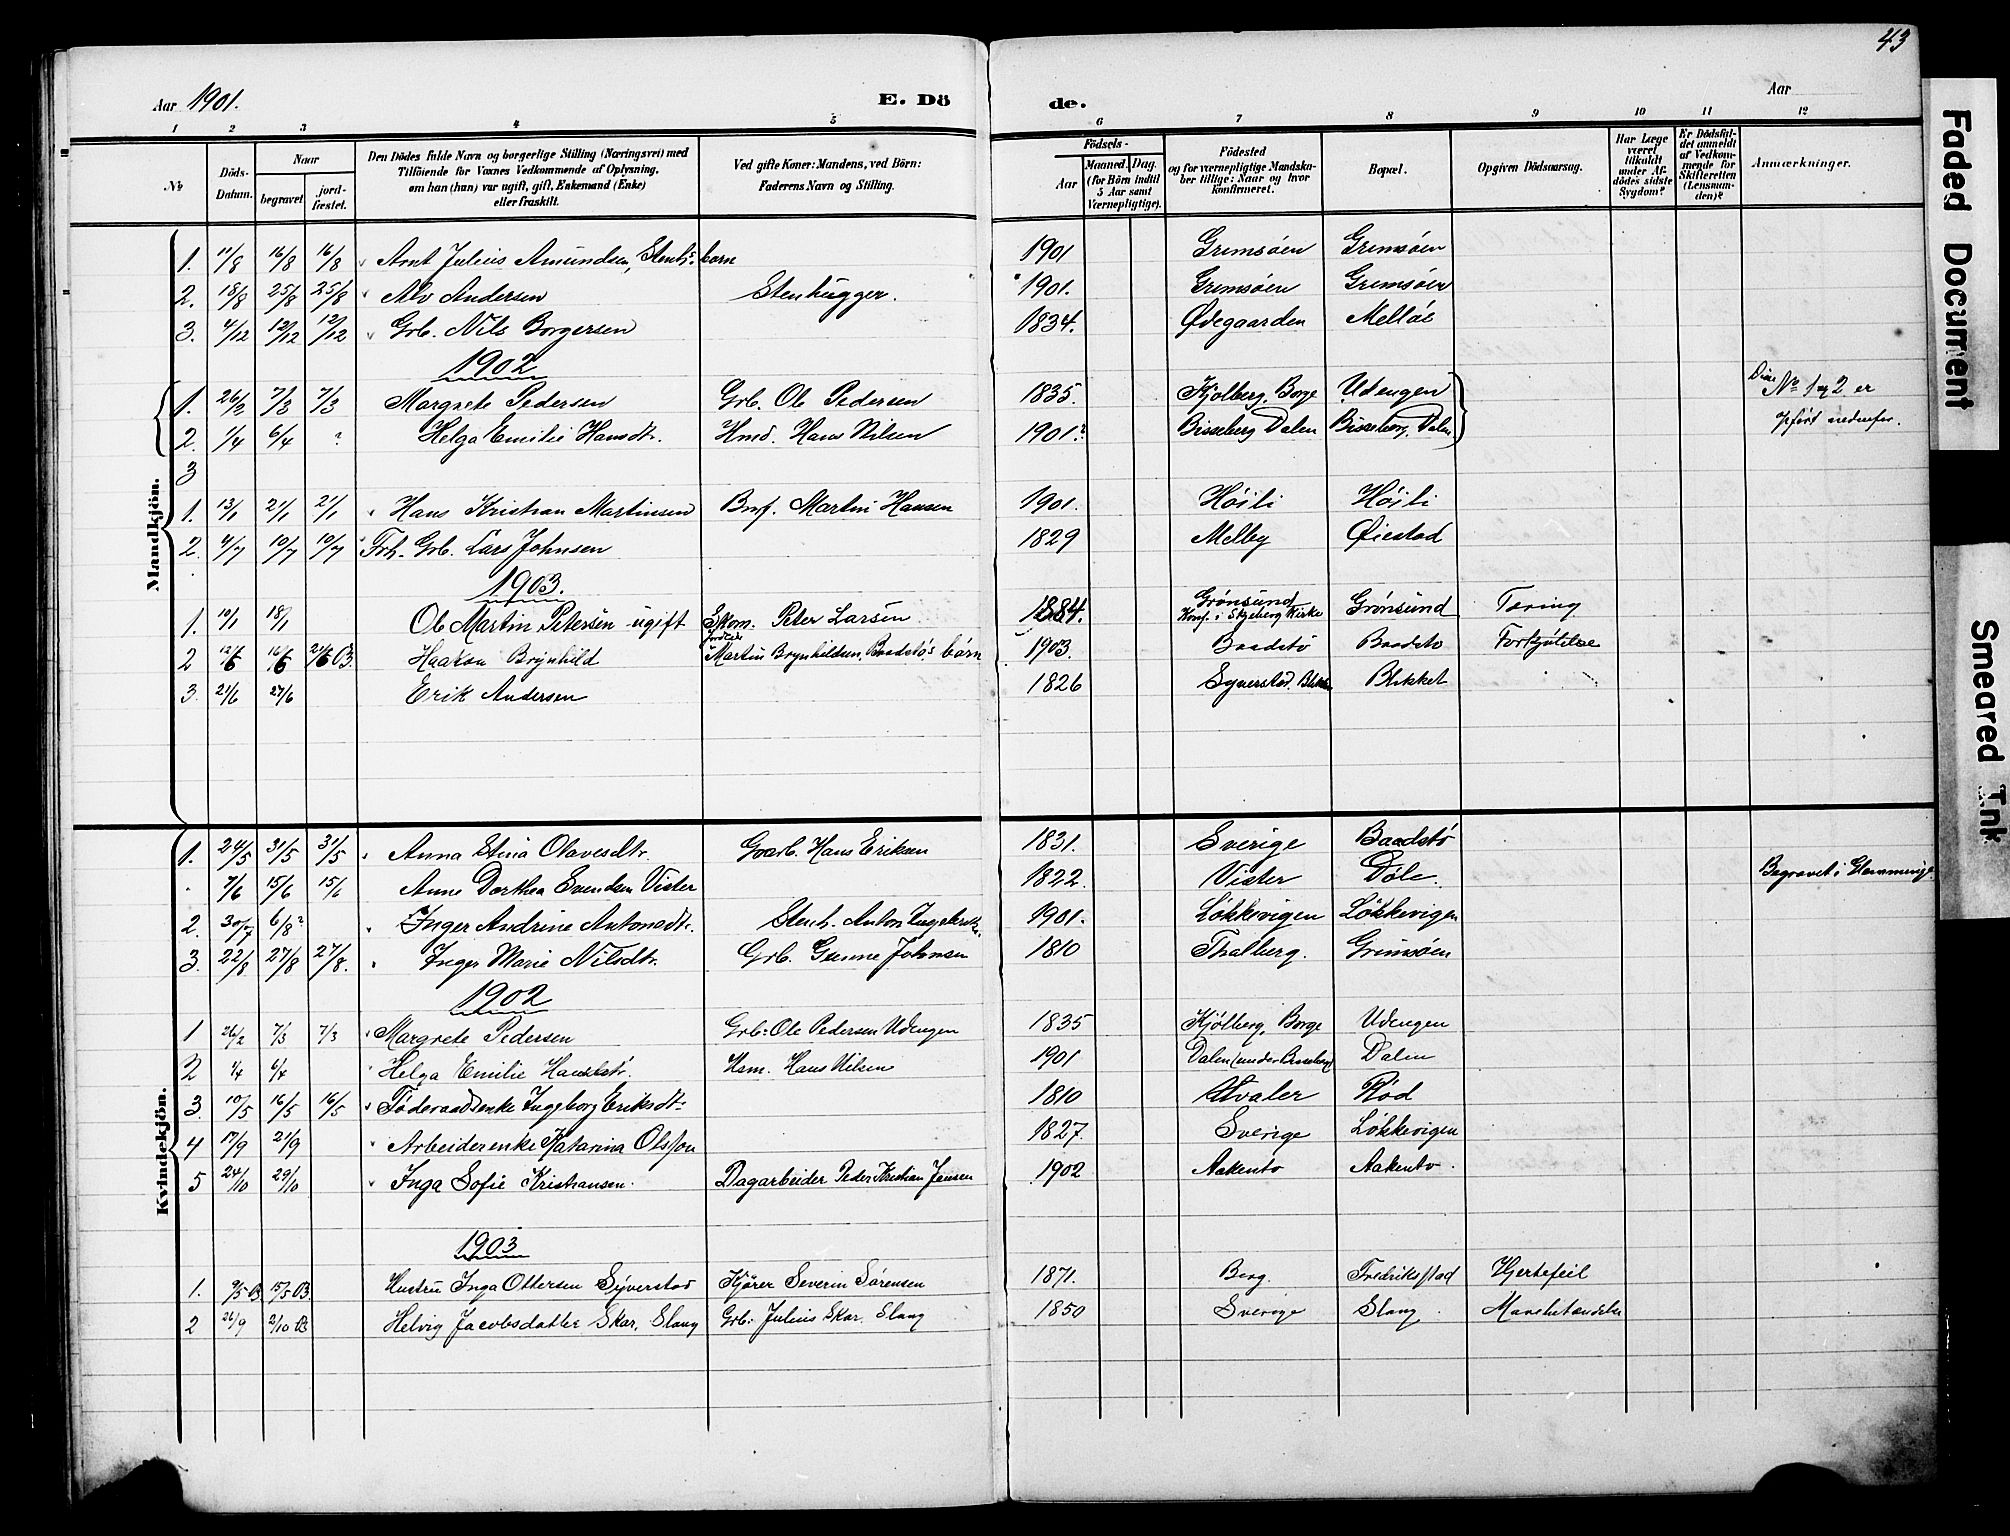 43
Aar 1901.
E. Dö
de.
Aar
1 2 3 4 5 6 7 8 9 10 11 12
No
Döds-Datum.
Naar
begravet
jordfæstet.
Den Dödes fulde Navn og borgerlige Stilling (Næringsvei) med Tilföiende for Voxnes Vedkommende af Oplysning, om han (hun) var ugift, gift, Enkemand (Enke) eller fraskilt.
Ved gifte Koner: Mandens, ved Börn: Faderens Navn og Stilling.
Födsels-
Aar
Maaned. Dag.
(for Börn indtil 5 Aar samt Værnepligtige).
Födested og for værnepligtige Mandskaber tillige: Naar og hvor konfirmeret.
Bopæl.
Opgiven Dödsaarsag.
Har Læge været tilkaldt under Afdödes sidste Sygdom?
Er Dödsfaldet anmeldt af Vedkommende for Skifteretten (Lensmanden)?
Anmærkninger.
Mandkjön.
1. 11/8 16/8 16/8 Arnt Julius Amundsen, Stenh's børn 1901 Gremsøen Gremsøen
2. 18/8 25/8 25/8 Alv Andersen Stenhugger. 1901. Gremsøen Gremsøen
3. 4/12 12/12 12/12 Grb. Nils Borgersen 1834. Ødegaarden Melløs
1902
1. 26/2 7/3 7/3 Margrete Pedersen Grb. Ole Pedersen 1835. Kjølberg, Borge Udengen No 1 og 2 er
2. 1/4 6/4 ? Helga Emilie Hansdtr. Hmd. Hans Nilsen 1901.? Bisseberg Dalen Bisseberg, Dalen opført nedenfor.
3
1. 13/1 21/1 21/1 Hans Kristian Martinsen Martin Hansen 1901. Høili Høili
2. 4/7 10/7 10/7 Frh. Grb. Lars Johnsen 1829 Melby Øiestad
1903.
1. 10/1 18/1 Ole Martin Petersen ugift Skom. Peter Larsen 1884. Grønsund Konf. i Skjeberg Kirke Grønsund Tæring
2 12/6 16/6 21/6 03. Haakon Brynhild Martin Brynhildsen, Baadstø's børn 1903. Baadstø Baadstø Forkjølelse
3. 21/6 27/6 Erik Andersen 1826 Syverstad, Blikket
Kvindekjön.
1. 24/5 31/5 31/5 Anna Stina Olavesdtr. Gaarb. Hans Eriksen 1831. Sverige Baadstø
7/6 15/6 15/6 Anne Dorthea Svendsen Vister 1822. Vister Døle. Begravet i Glemminge
2. 30/7 6/8? Inger Andrine Antonsdtr. Stenh. Anton Ingebretsen 1901. Løkkevigen Løkkevigen
3. 22/8 27/8 27/8. Inger Marie Nilsdtr. Grb. Gunne Johnsen 1810 Thalberg. Gremsøen
1902
1 26/2 7/3 7/3 Margrete Pedersen Grb: Ole Pedersen Udengen 1835 Kjølberg, Borge Udengen
2 1/4 6/4 Helga Emilie Hansdtr. Hsm. Hans Nilsen 1901 Dalen (under Bisseberg) Dalen
3. 10/5 16/5 16/5 Føderaadsenke Ingeborg Eriksdtr 1810 Hvaler Rød
4 17/9 21/9 Arbeiderenke Katarina Olsson 1827. Sverige Løkkevigen
5 24/10 29/10 Inga Sofie Kristiansen. Dagarbeider Peder Kristian Jensen 1902 Aakentø Aakentø.
1903
1. 9/5 03. 15/5 03. Hustru Inga Ottersen Syverstad Kjører Severin Sørensen 1871. Berg. Fredriksstad Hjertefeil
2 26/9 2/10 03 Helvig Jacobsdatter Skar, Slang Grb: Julius Skar, Slang 1850 Sverige Slang.
Faded Document
Smeared Ink